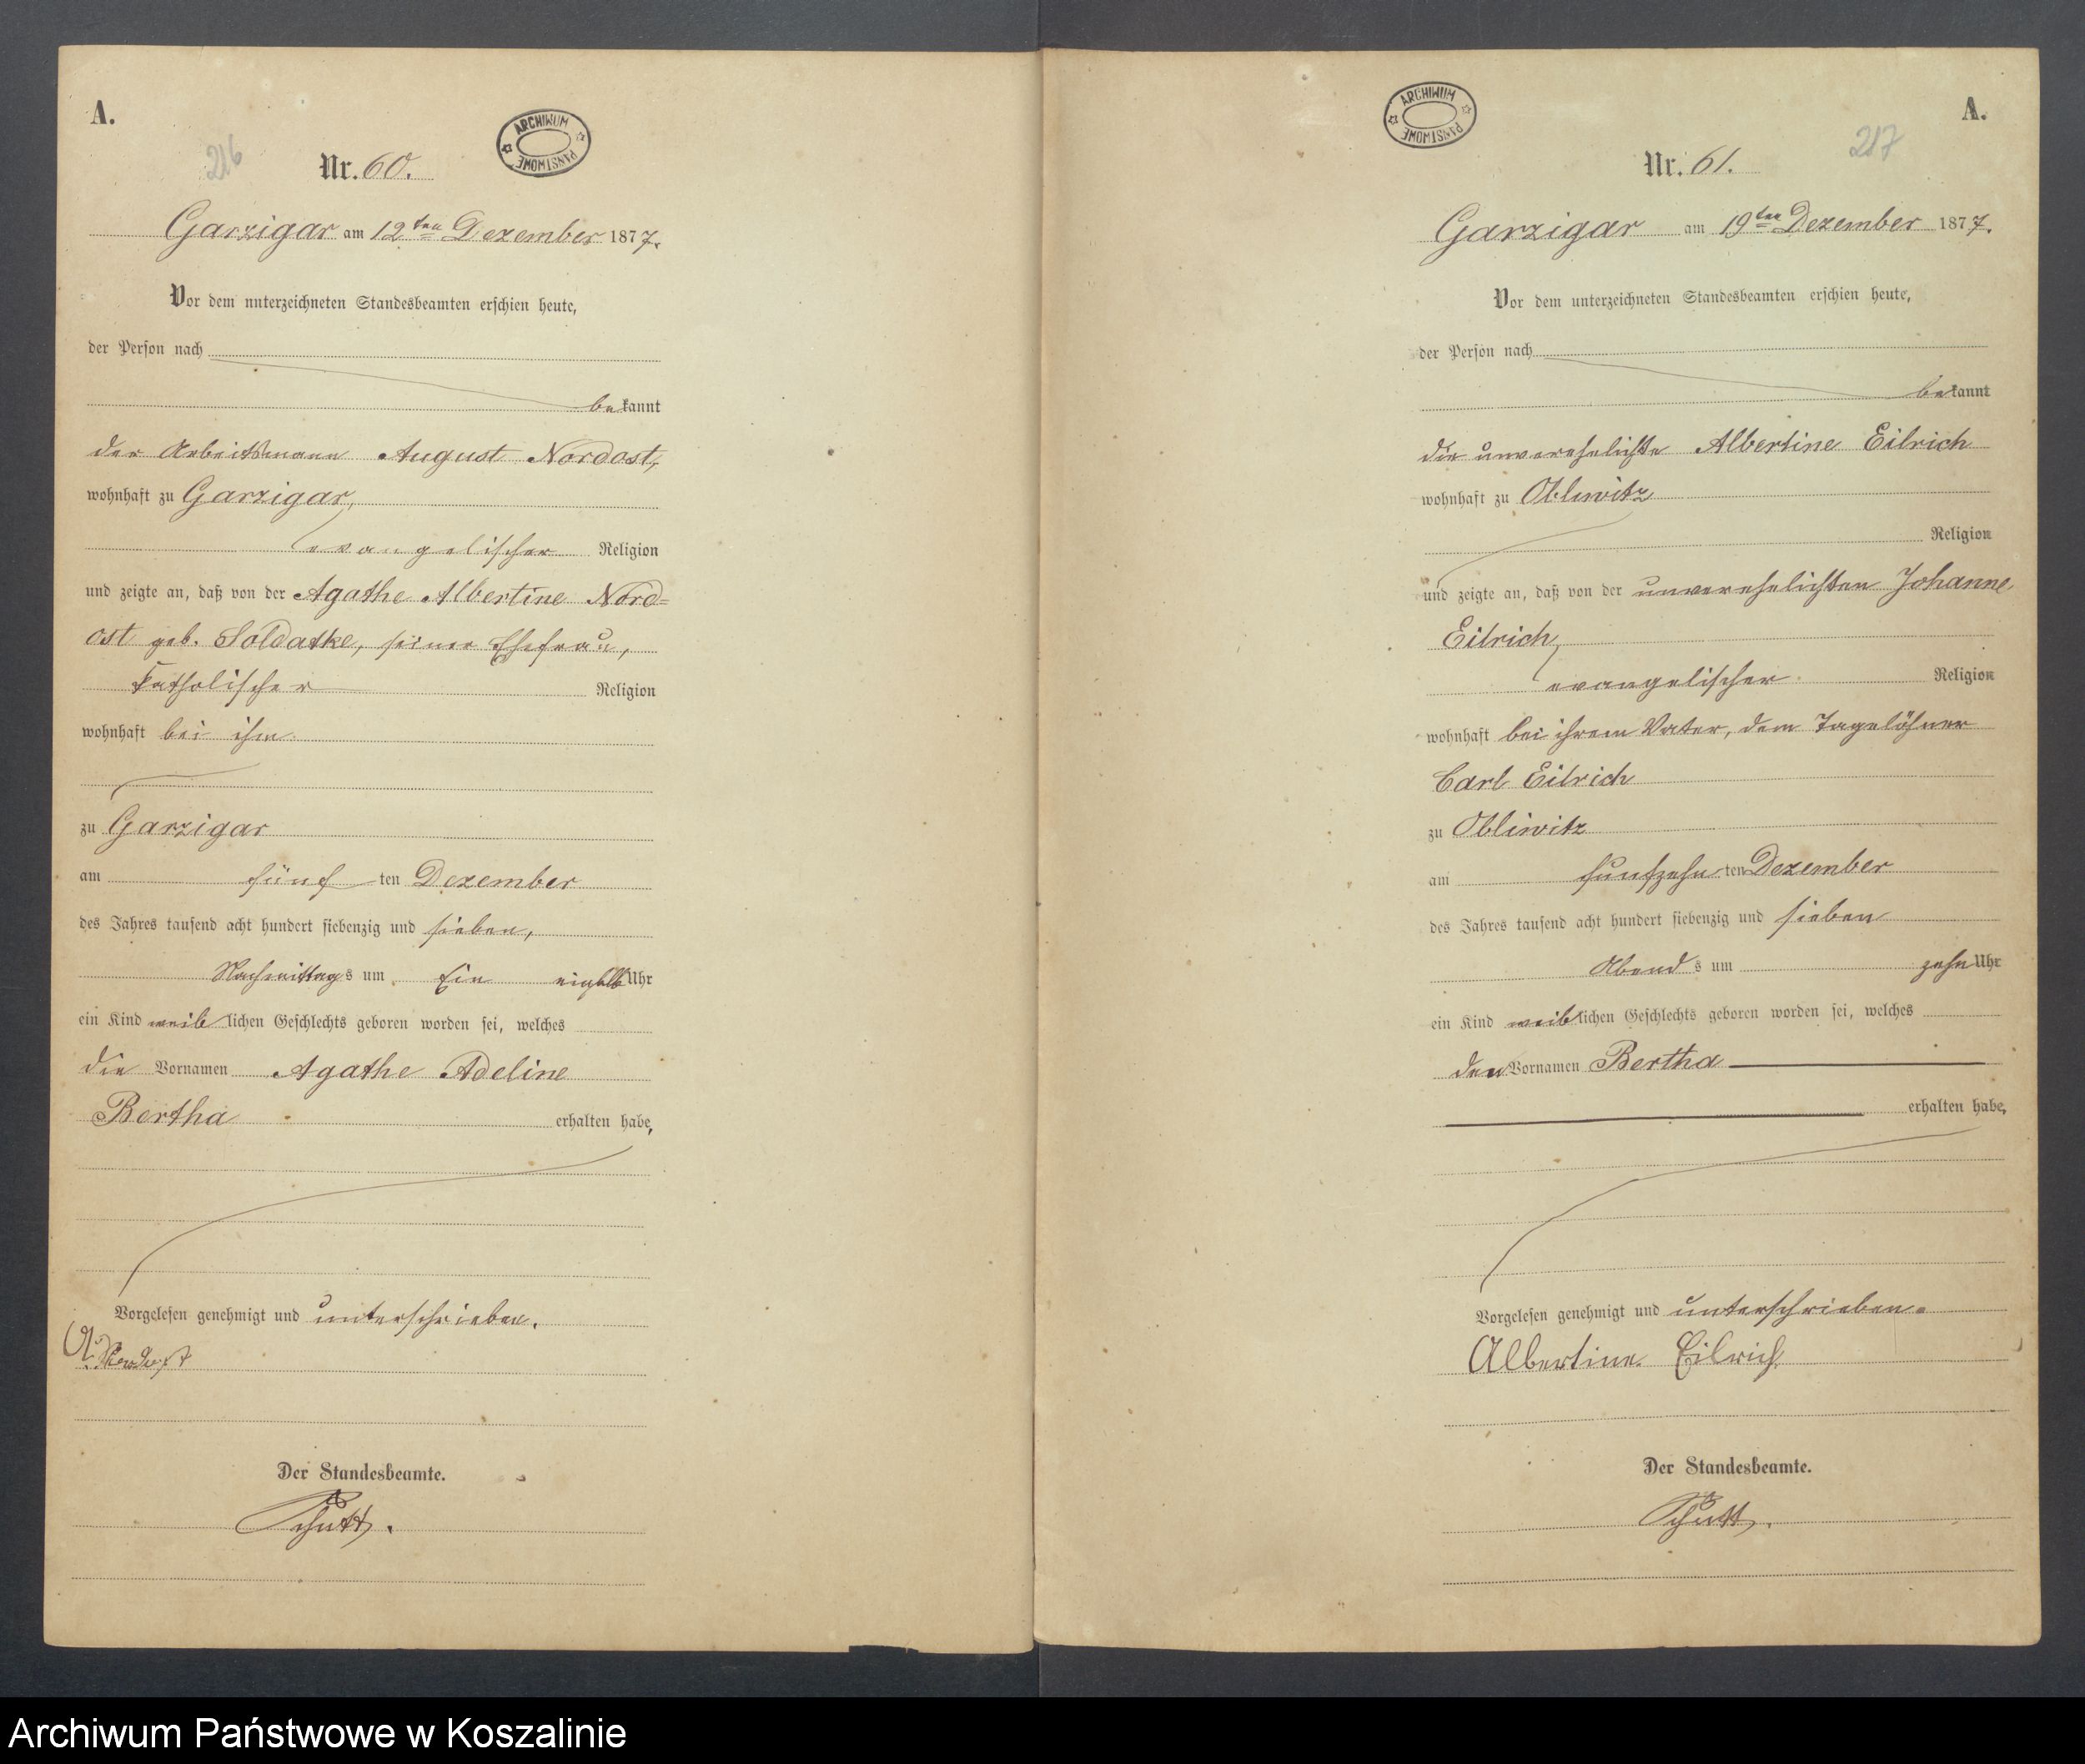 A.
216
Nr. 60.
ARCHIWUM PAŃSTWOWE
Garzigar am 12ten Dezember 1877.
Vor dem unterzeichneten Standesbeamten erschien heute,
der Person nach
bekannt
der Arbeitsmann August Nordost,
wohnhaft zu Garzigar,
evangelischer Religion
und zeigte an, daß von der Agathe Albertine Nord=
ost geb. Soldatke, seiner Ehefrau,
katholischer Religion
wohnhaft bei ihm
zu Garzigar
am fünf ten Dezember
des Jahres tausend acht hundert siebenzig und sieben,
Nachmittags um Ein Uhr
ein Kind weiblichen Geschlechts geboren worden sei, welches
die Vornamen Agathe Adeline
Bertha erhalten habe,
Vorgelesen genehmigt und unterschrieben.
A. Nordost
Der Standesbeamte.
Schütt.
A.
217
Nr. 61.
ARCHIWUM PAŃSTWOWE
Garzigar am 19ten Dezember 1877.
Vor dem unterzeichneten Standesbeamten erschien heute,
der Person nach
bekannt
die unverehelichte Albertine Eilrich
wohnhaft zu Obliwitz
Religion
und zeigte an, daß von der unverehelichten Johanne
Eilrich,
evangelischer Religion
wohnhaft bei ihrem Vater, dem Tagelöhner
Carl Eilrich
zu Obliwitz
am funfzehn ten Dezember
des Jahres tausend acht hundert siebenzig und sieben
Abends um zehn Uhr
ein Kind weiblichen Geschlechts geboren worden sei, welches
den Vornamen Bertha
erhalten habe,
Vorgelesen genehmigt und unterschrieben.
Albertine Eilrich
Der Standesbeamte.
Schütt.
Archiwum Państwowe w Koszalinie